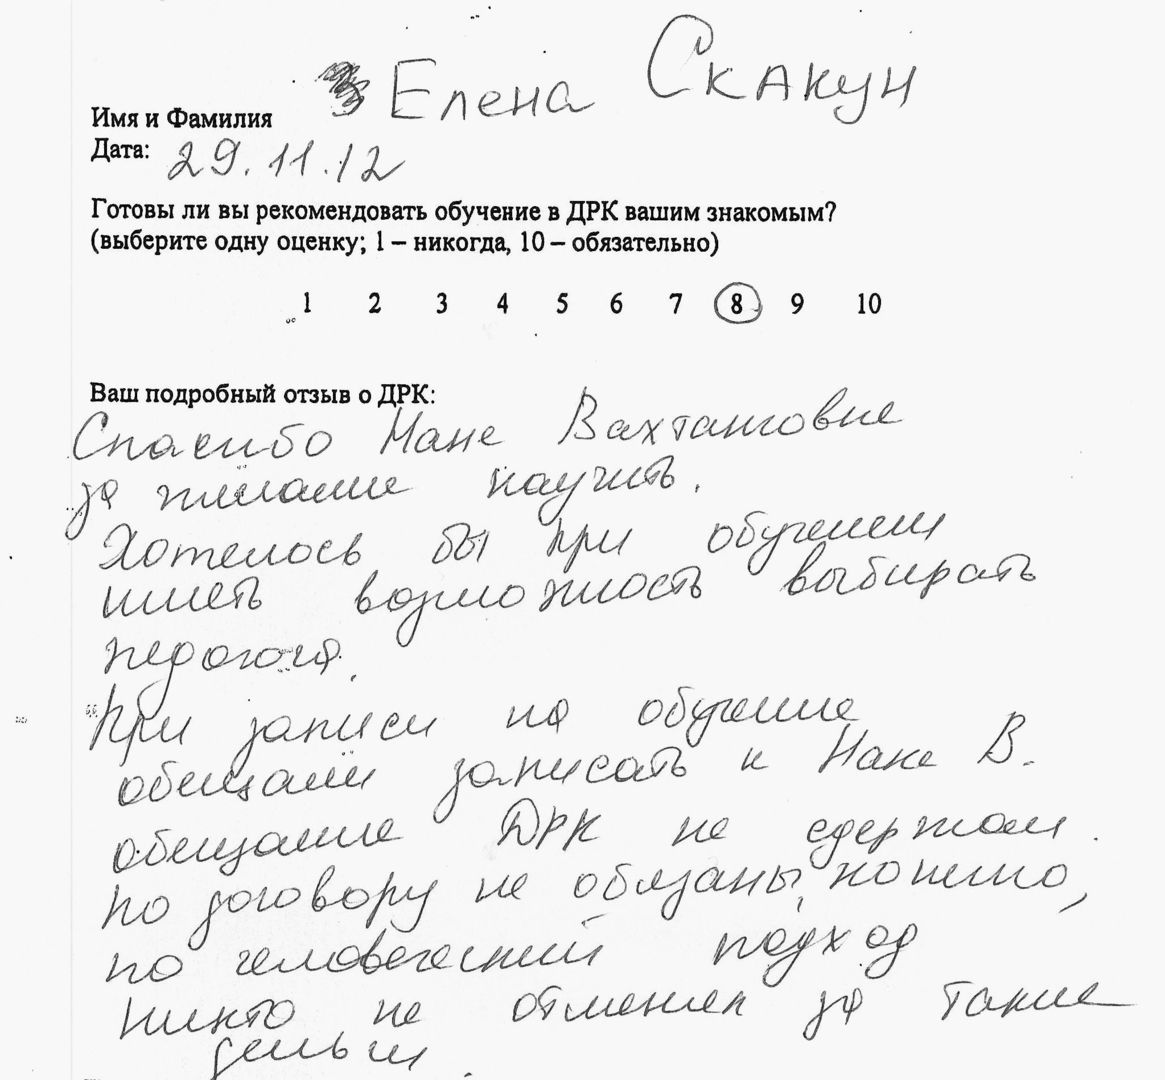 Елена Скакун
Имя и Фамилия
Дата: 29.11.12
Готовы ли вы рекомендовать обучение в ДРК вашим знакомым?
(выберите одну оценку; 1 – никогда, 10 – обязательно)
1 2 3 4 5 6 7 8 9 10
Ваш подробный отзыв о ДРК:
Спасибо Нане Вахтанговне
за желание научить.
Хотелось бы при обучении
иметь возможность выбирать
педагога.
При записи на обучение
обещали записать к Нане В.
обещание ДРК не сдержали.
по договору не обязаны, конечно,
но человеческий подход
никто не отменял за такие
деньги.